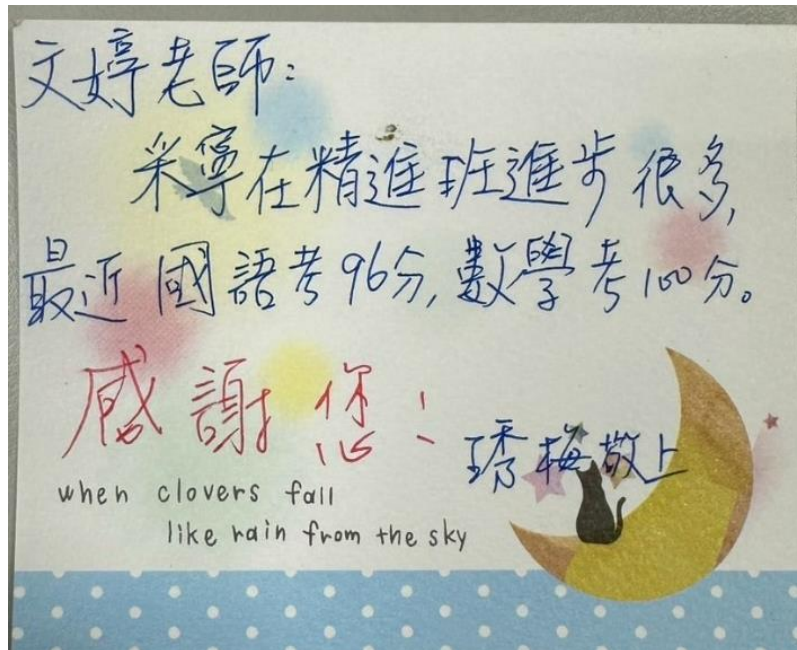 文婷老師:
采寧在精進班進步很多,
最近國語考96分,數學考100分。
感謝您!
琇梅敬上
when clovers fall
like rain from the sky